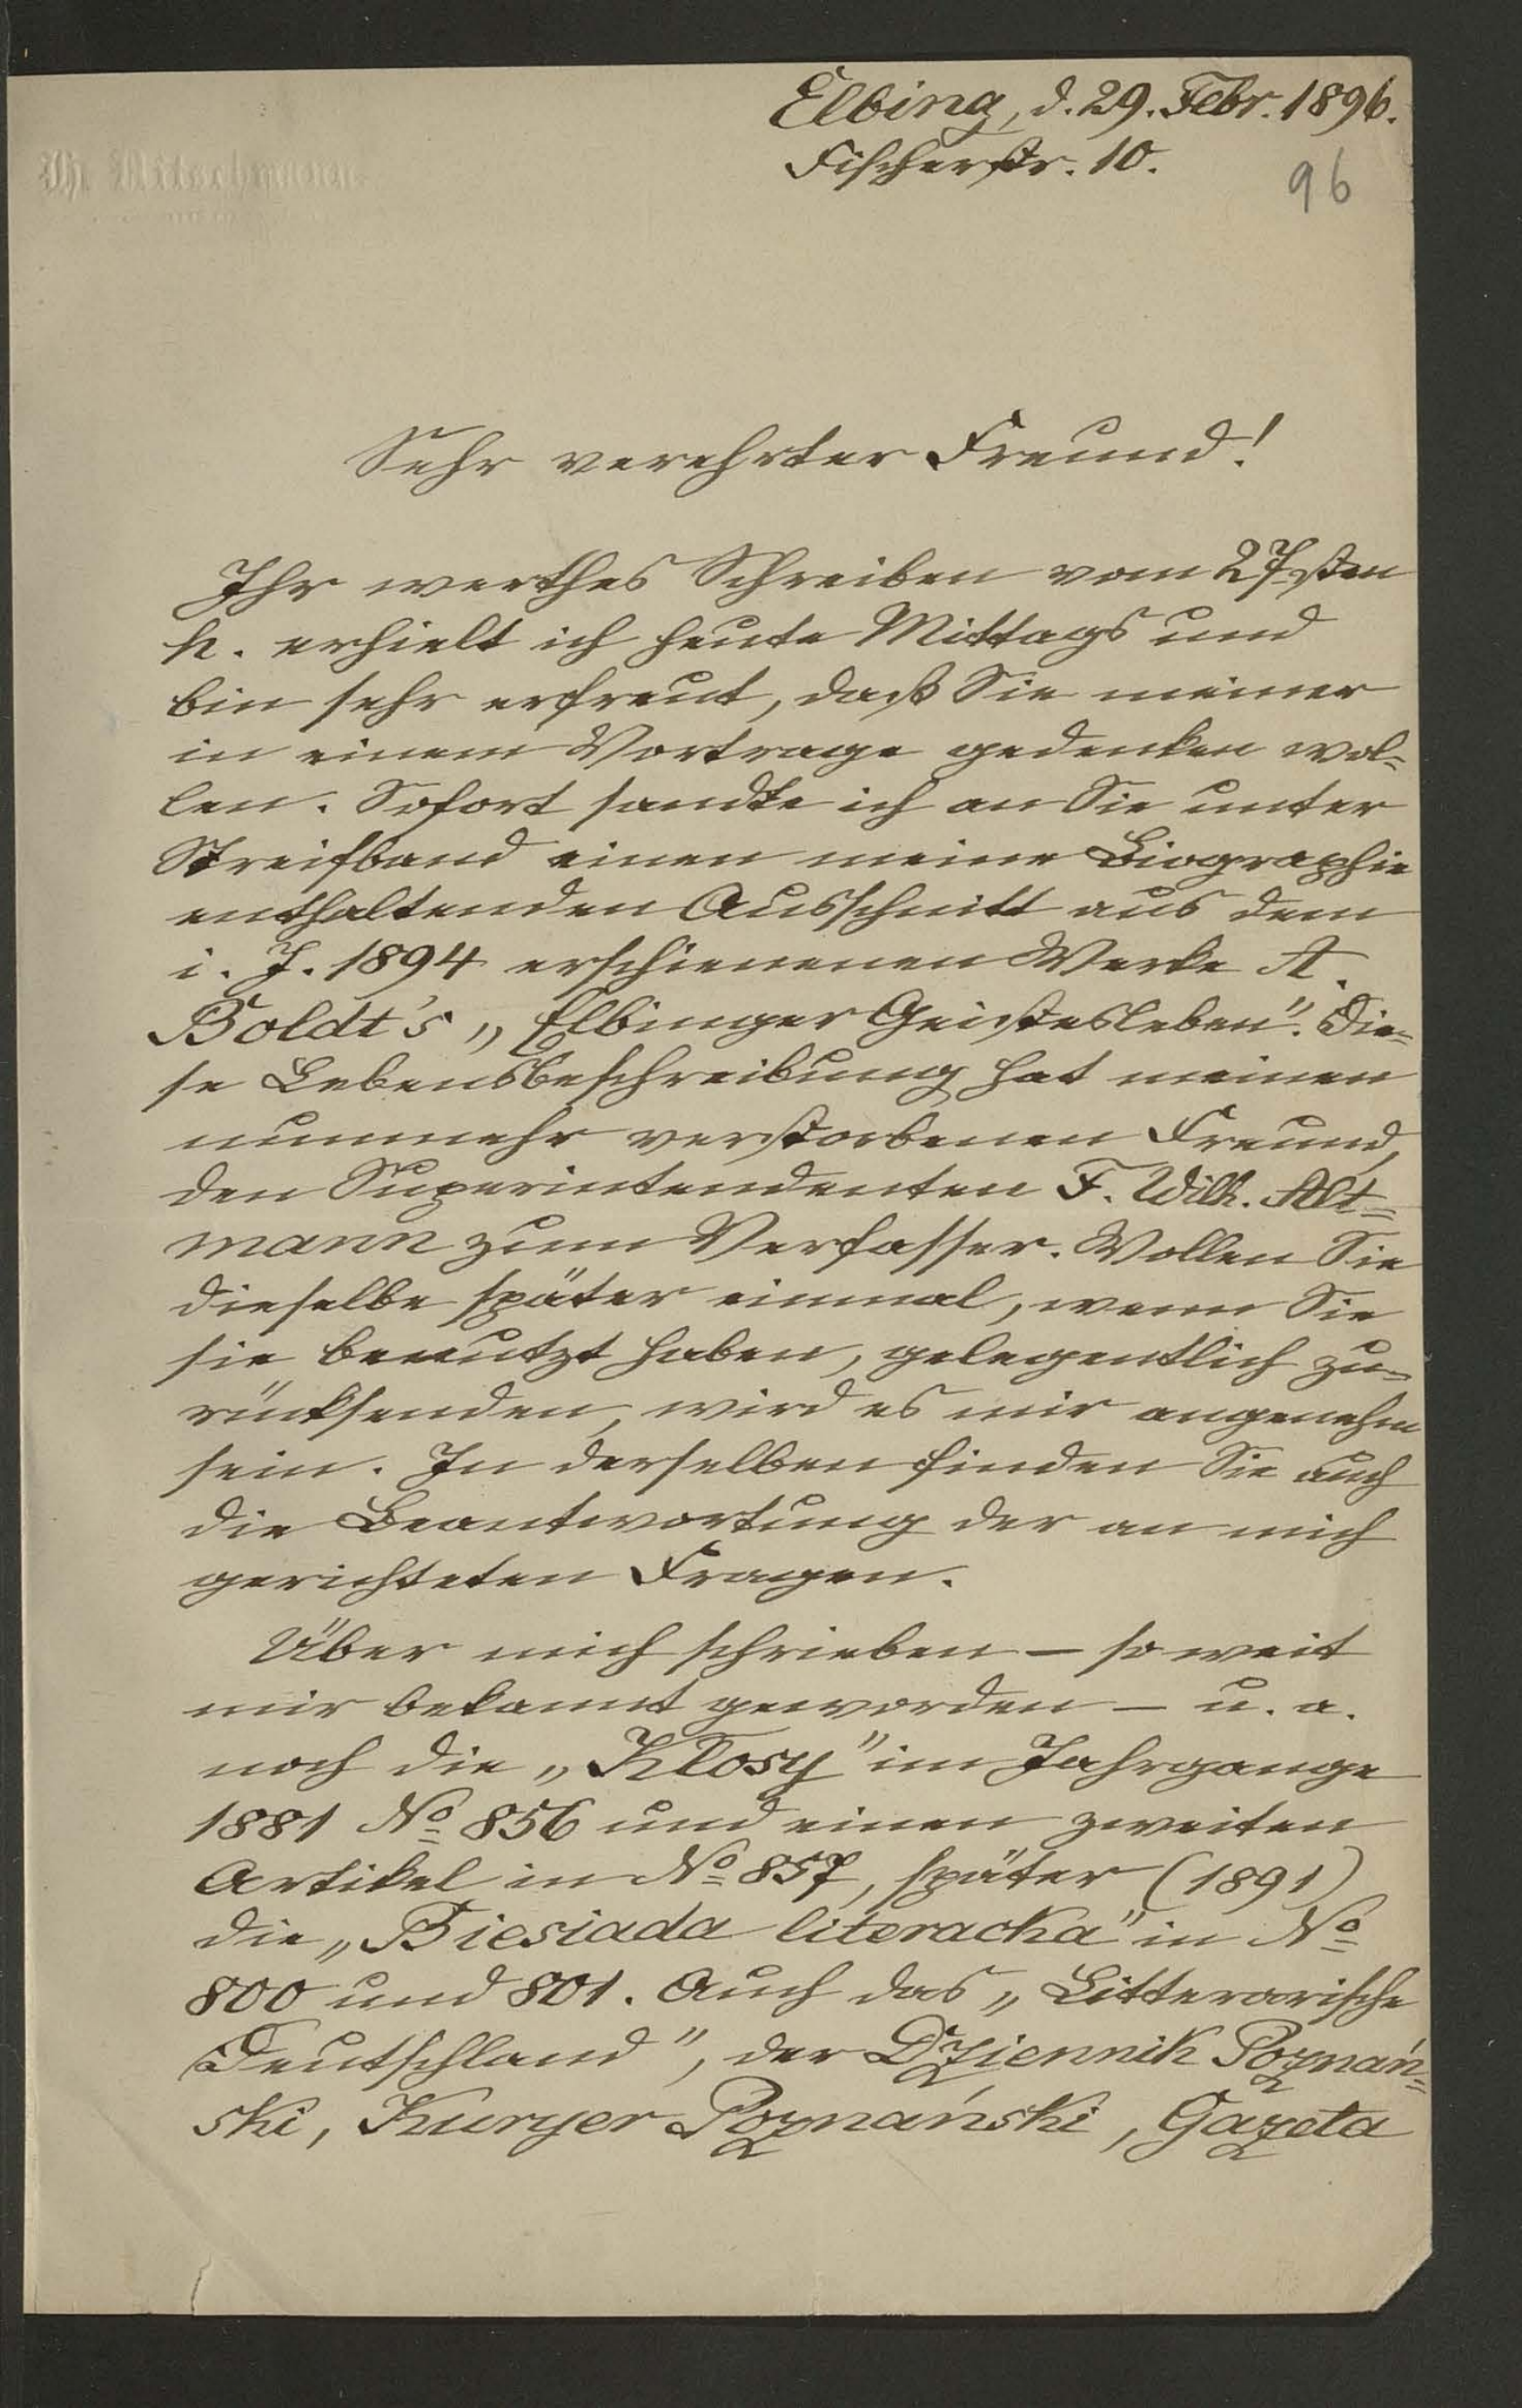 Elbing, d. 29. Febr. 1896.
Fischerstr. 10.
96
Sehr verehrter Freund!
Ihr werthes Schreiben vom 27sten
h. erhielt ich heute Mittags und
bin sehr erfreut, daß Sie meiner
in einem Vortrage gedenken wol=
len. Sofort sandte ich an Sie unter
Streifband einen meine Biographie
enthaltenden Ausschnitt aus dem
i. J. 1894 erschienenen Werke A.
Boldt's „Elbinger Geistesleben". Die=
se Lebensbeschreibung hat meinen
nunmehr verstorbenen Freund,
den Superintendenten F. Wilh. Alt=
mann zum Verfasser. Wollen Sie
dieselbe später einmal, wenn Sie
sie benutzt haben, gelegentlich zu=
rücksenden, wird es mir angenehm
sein. In derselben finden Sie auch
die Beantwortung der an mich
gerichteten Fragen.
Über mich schrieben – so weit
mir bekannt geworden – u. a.
noch die „Kłosy" im Jahrgange
1881 No 856 und einen zweiten
Artikel in No 857, später (1891)
die „Biesiada literacka" in No
800 und 801. Auch das „Litterarische
Deutschland", der Dziennik Poznań=
ski, Kuryer Poznański, Gazeta